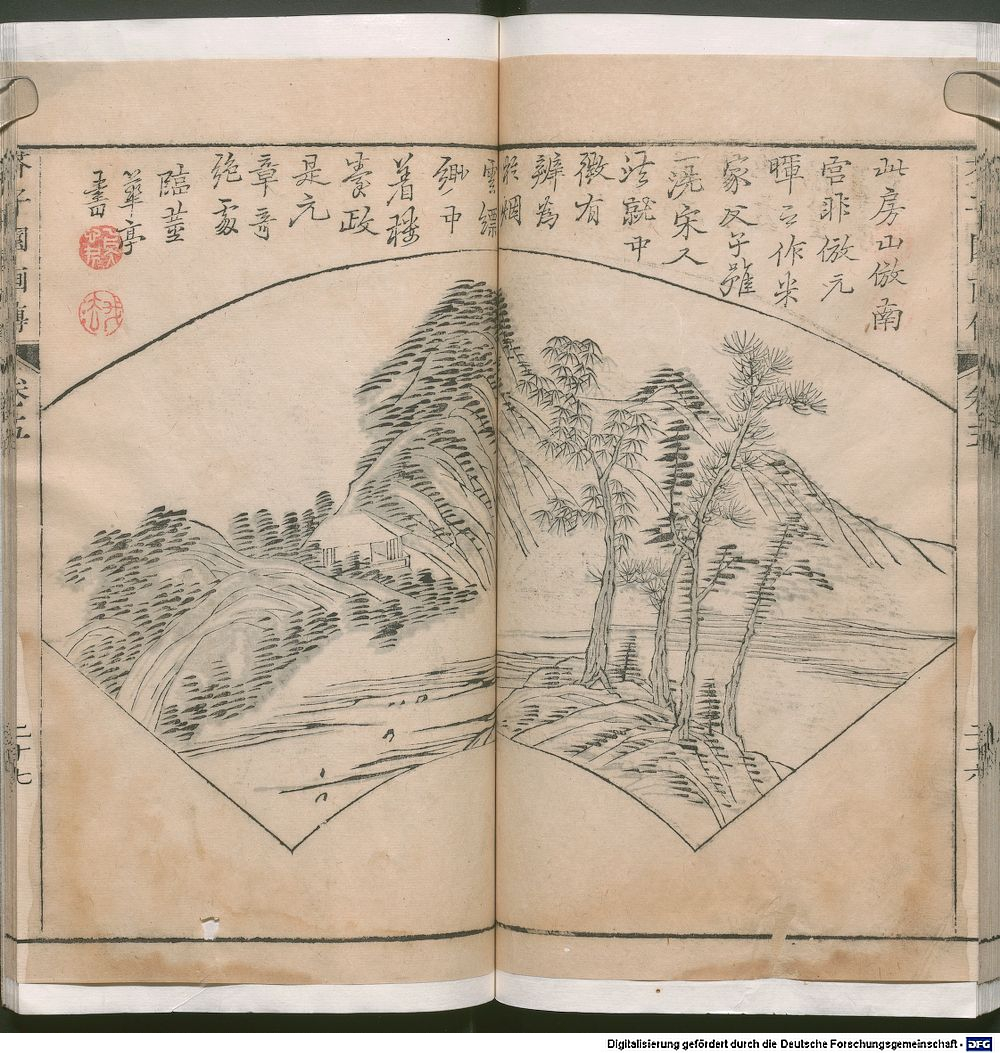 此房山倣南
宫非倣元
暉之作米
家父子雖
一洗宋人
法就中
微有
辨為
於烟
雲縹
緲中
着樓
臺政
是元
章奇
絶處
臨並
華亭
書
芥子園画傳
卷之五
二十七
二十六
Digitalisierung gefördert durch die Deutsche Forschungsgemeinschaft - DFG